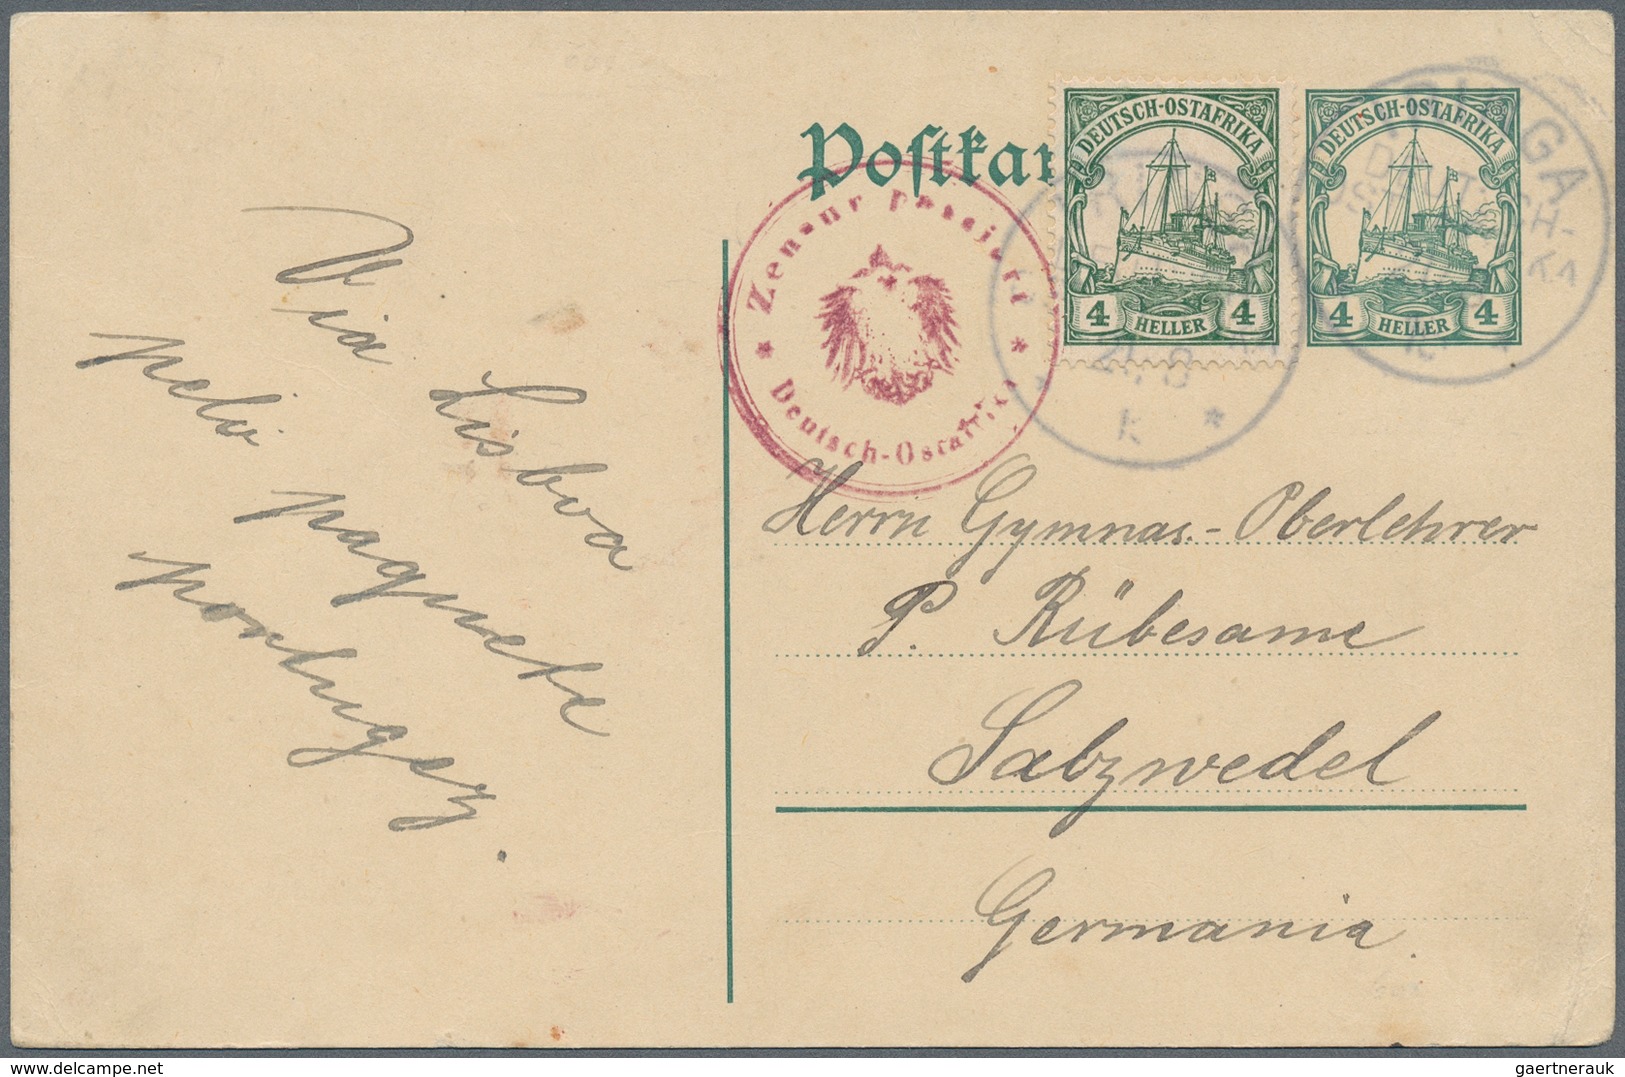 Postkar
DEUTSCH-OSTAFRIKA
4 HELLER 4
DEUTSCH-OSTAFRIKA
4 HELLER 4
* Zensur passiert *
Deutsch-Ostafrika
k *
Via Lisboa
pelo paquete
portuguez.
Herrn Gymnas.-Oberlehrer
P. Rübesame
Salzwedel
Germania.
delcampe.net
gaertnerauk